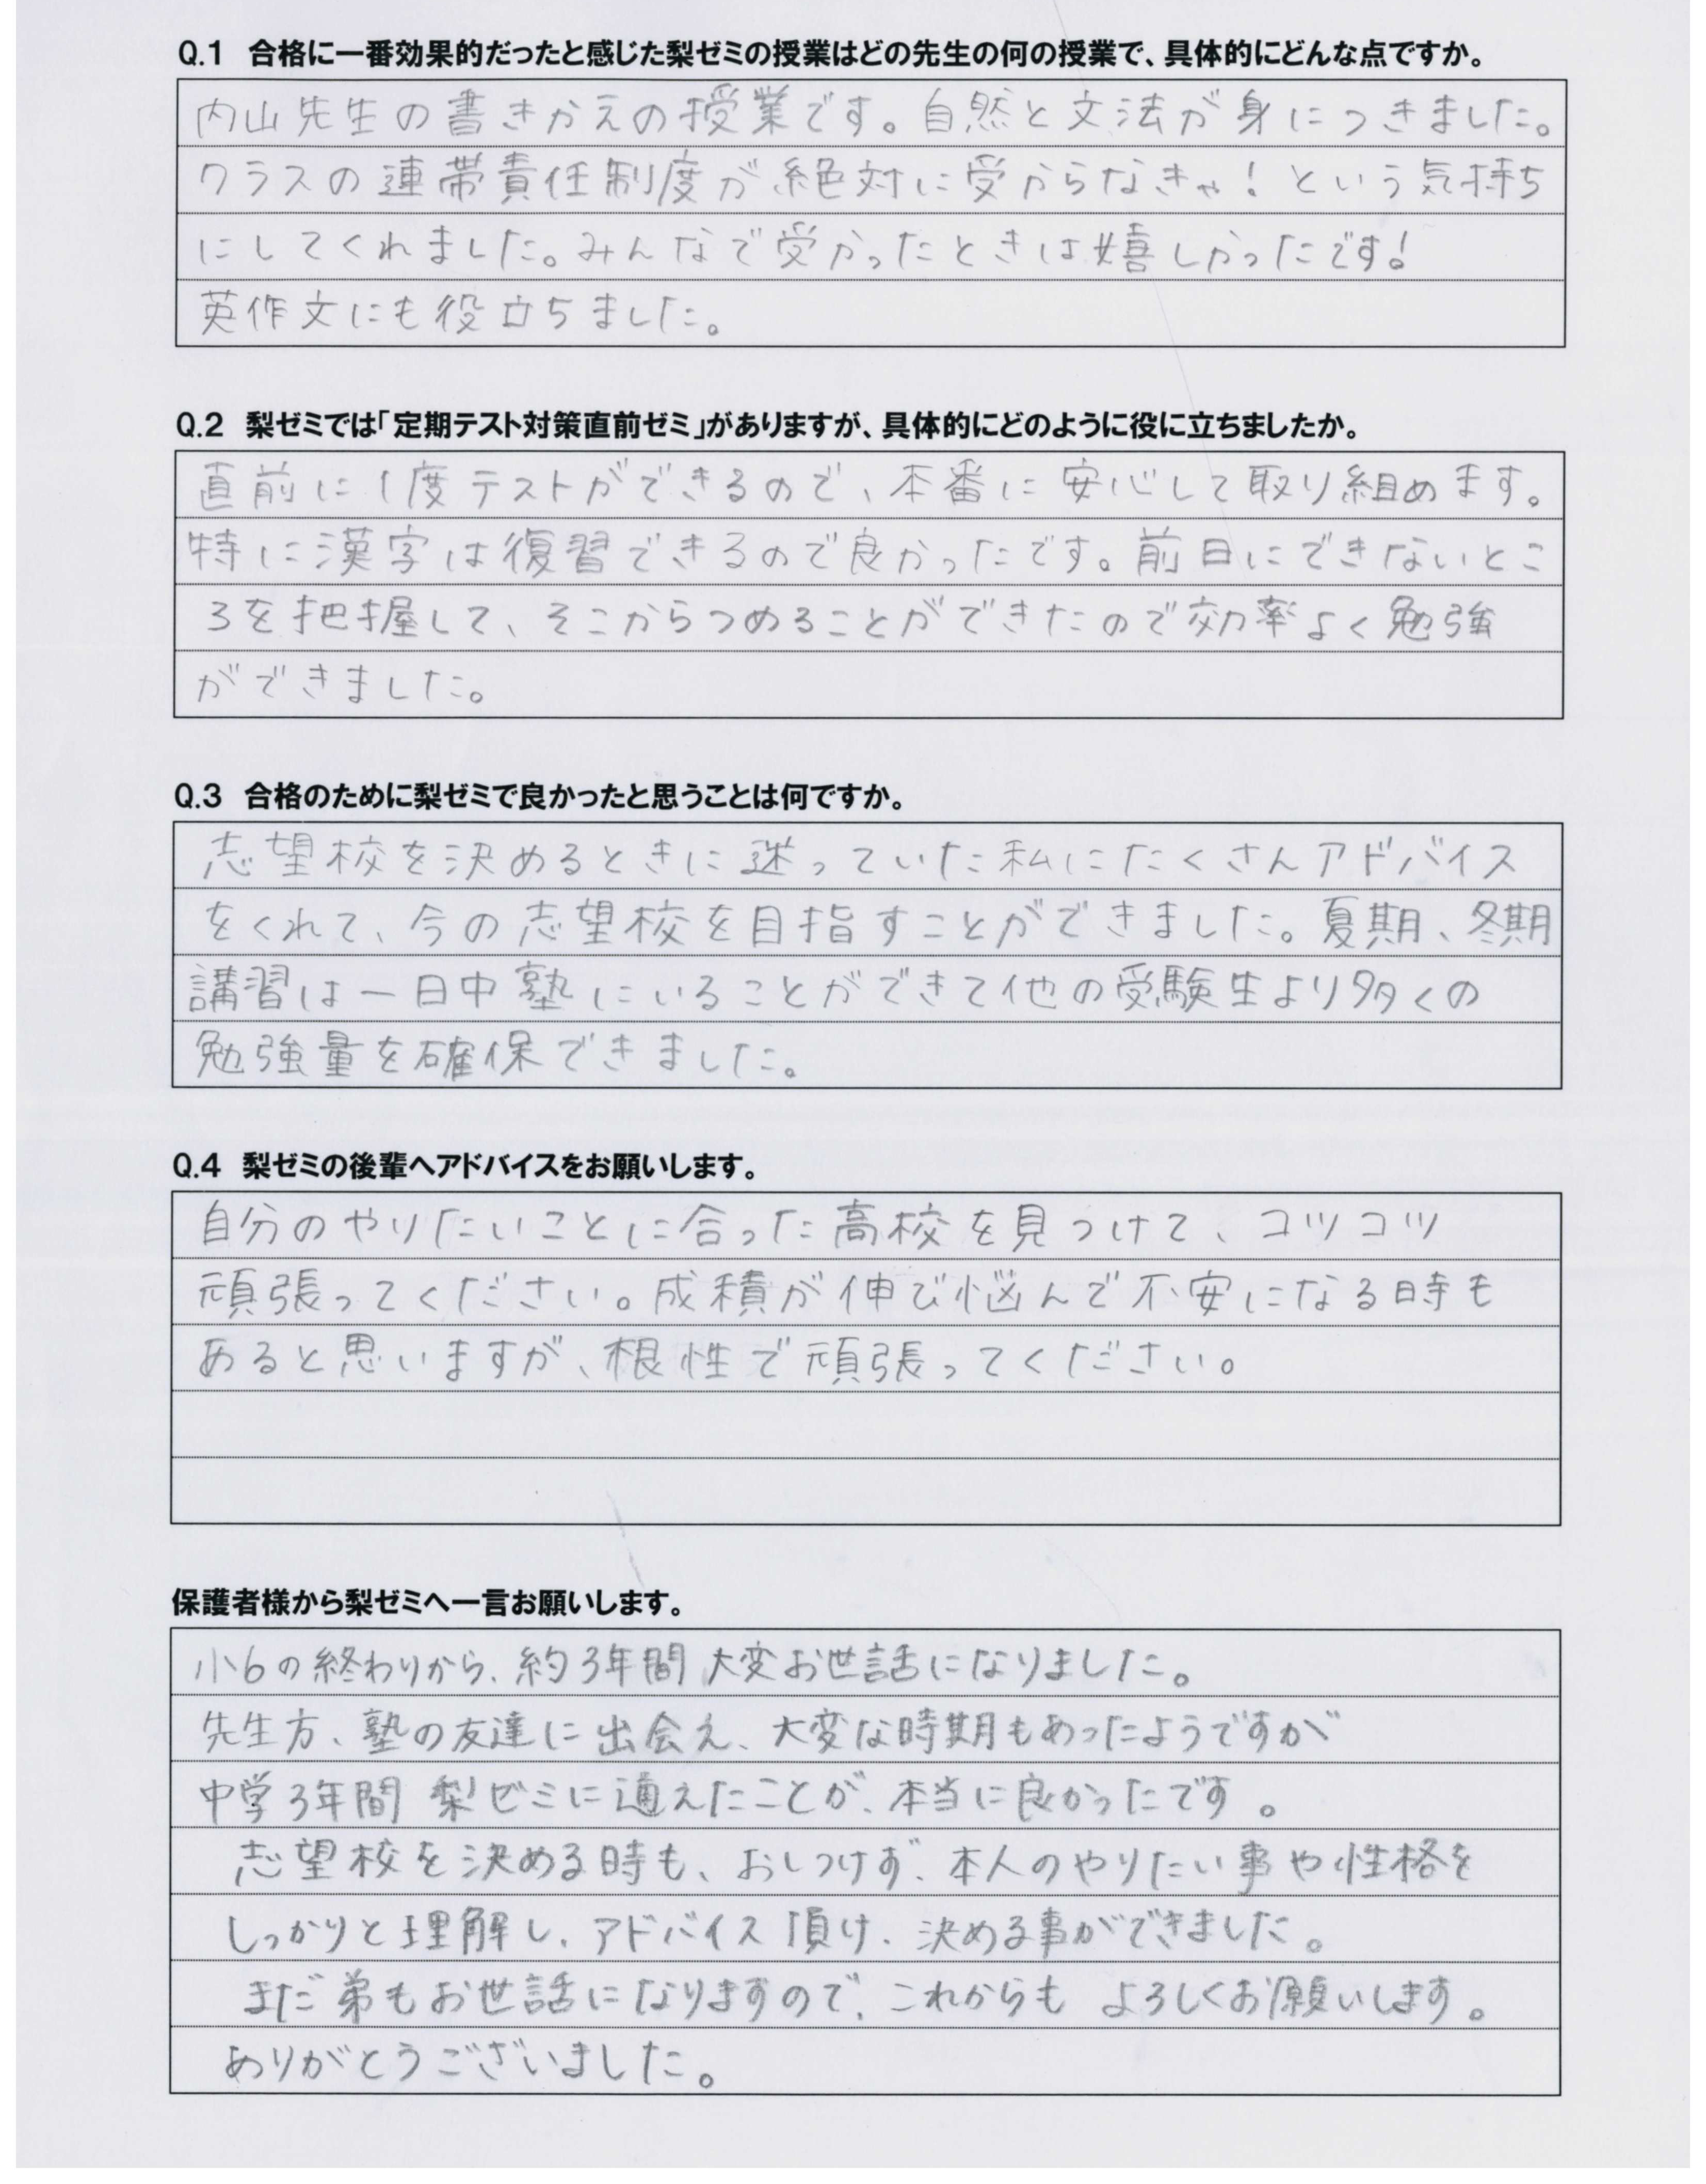 Q.1 合格に一番効果的だったと感じた梨ゼミの授業はどの先生の何の授業で、具体的にどんな点ですか。
内山先生の書きかえの授業です。自然と文法が身につきました。
クラスの連帯責任制度が絶対に受からなきゃ！という気持ち
にしてくれました。みんなで受かったときは嬉しかったです！
英作文にも役立ちました。
Q.2 梨ゼミでは「定期テスト対策直前ゼミ」がありますが、具体的にどのように役に立ちましたか。
直前に1度テストができるので、本番に安心して取り組めます。
特に漢字は復習できるので良かったです。前日にできないとこ
ろを把握して、そこからつめることができたので効率よく勉強
ができました。
Q.3 合格のために梨ゼミで良かったと思うことは何ですか。
志望校を決めるときに迷っていた私にたくさんアドバイス
をくれて、今の志望校を目指すことができました。夏期、冬期
講習は一日中塾にいることができて他の受験生より多くの
勉強量を確保できました。
Q.4 梨ゼミの後輩へアドバイスをお願いします。
自分のやりたいことに合った高校を見つけて、コツコツ
頑張ってください。成積が伸び悩んで不安になる時も
あると思いますが、根性で頑張ってください。
保護者様から梨ゼミへ一言お願いします。
小6の終わりから、約3年間 大変お世話になりました。
先生方、塾の友達に出会え、大変な時期もあったようですが
中学3年間 梨ゼミに通えたことが、本当に良かったです。
志望校を決める時も、おしつけず、本人のやりたい事や性格を
しっかりと理解し、アドバイス頂け、決める事ができました。
まだ弟もお世話になりますので、これからも よろしくお願いします。
ありがとうございました。